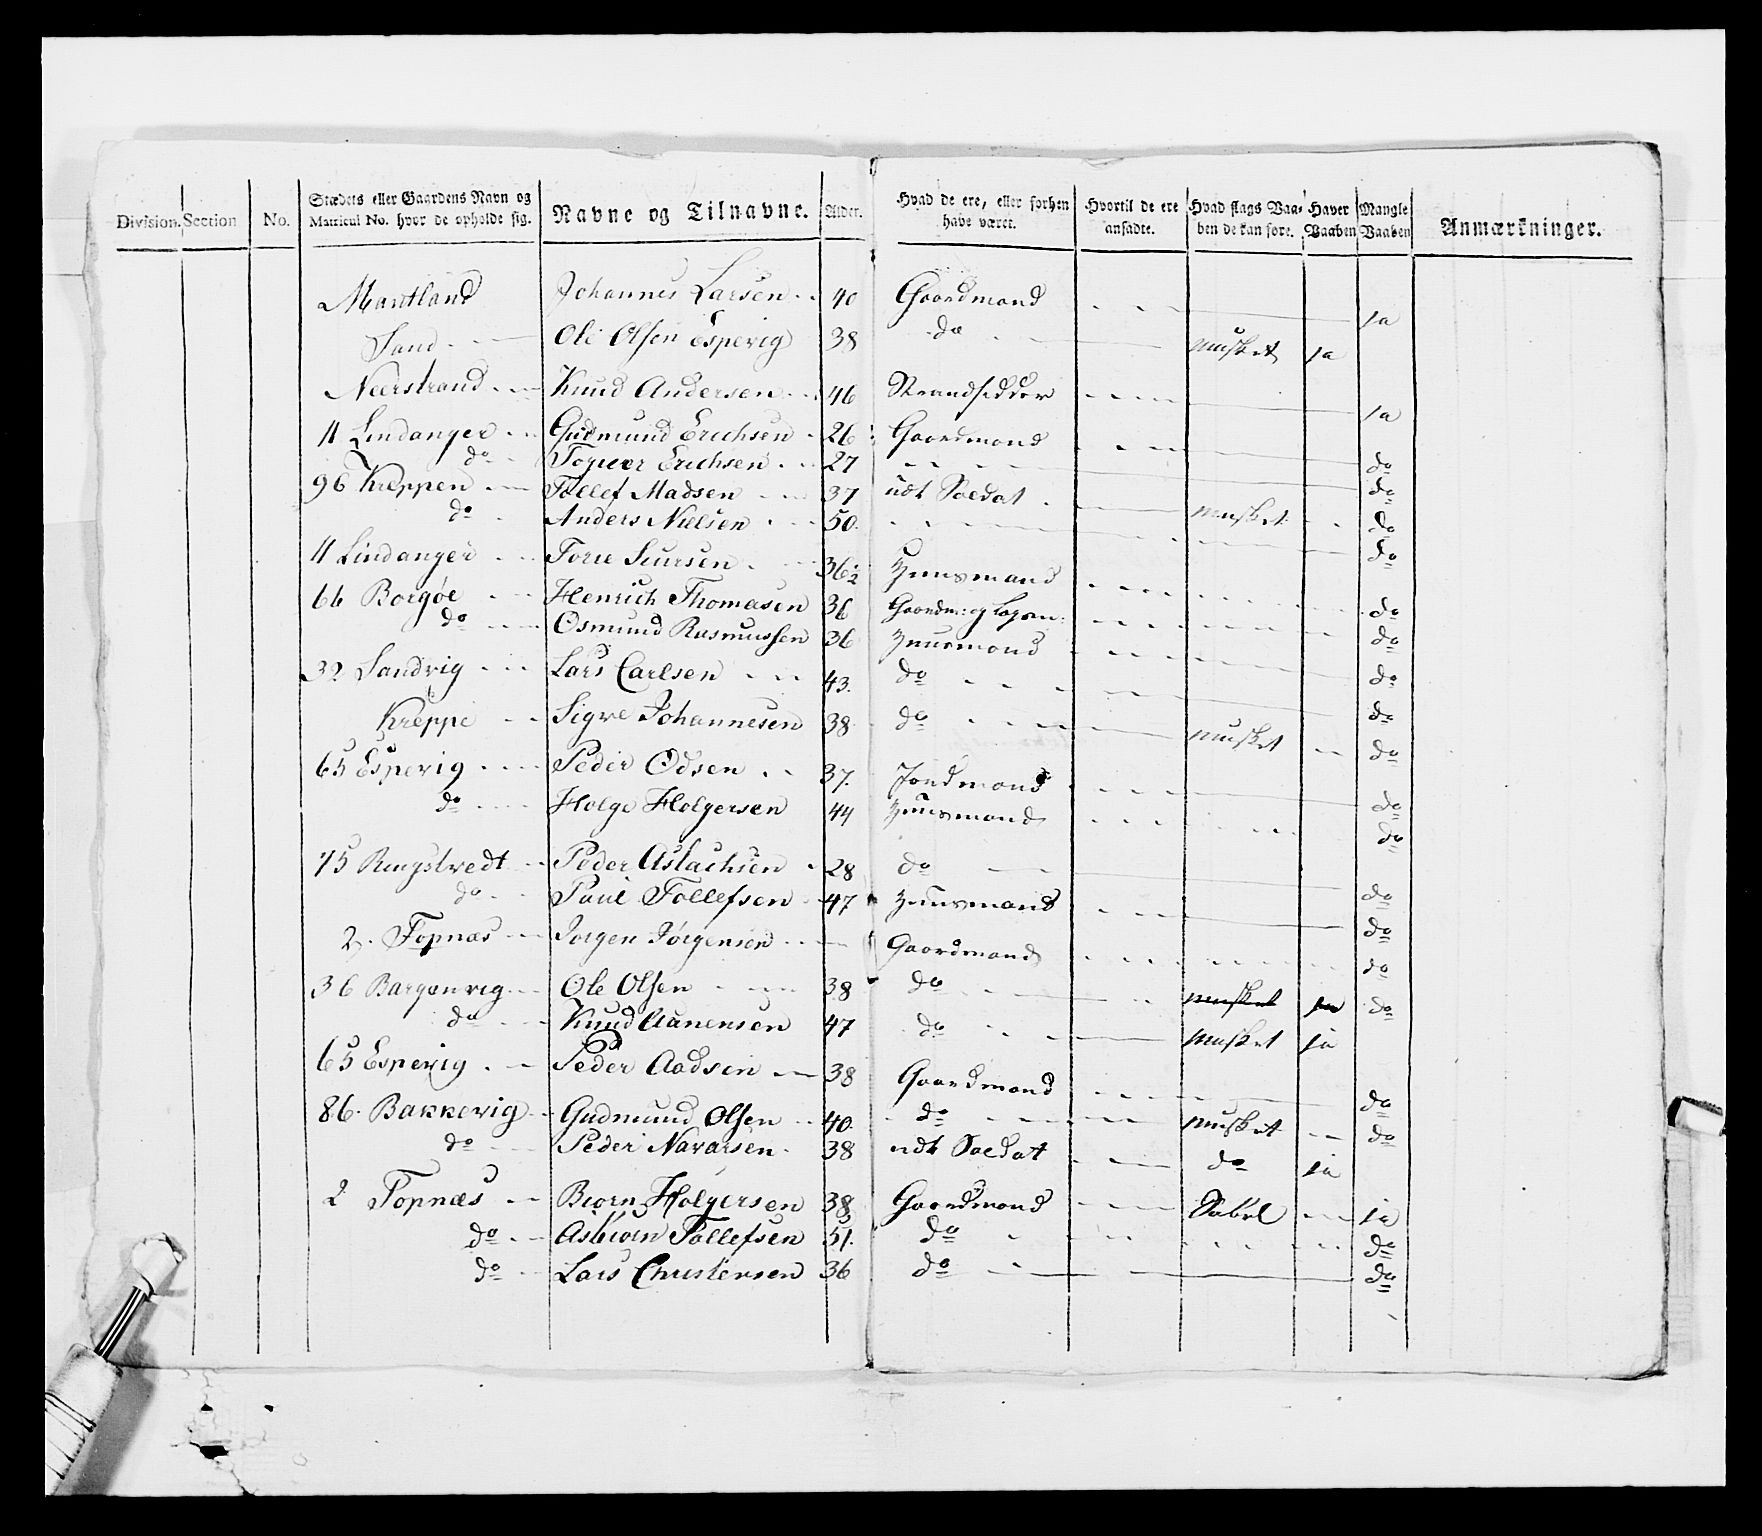 Division. Section No. Stædets eller Gaardens Navn og Matricul No. hvor de opholde sig. Navne og Tilnavne. Alder. Hvad de ere, eller forhen have været. Hvortil de ere ansadte. Hvad slags Vaaben de kan føre. Haver Vaaben Mangle Vaaben Anmærkninger.
Johannes Larsen 40 Gaardmand ja
Sand Ole Olsen Esperig 38 do musket ja
Neerstrand Knud Andersen 46 Strandsidder ja
11 Lindanger Gudmund Erichsen 26 Gaardmand do
do Erichsen 27 do
96 Kreppen Tollef Madsen 37 udt Soldat musket do
do Anders Nielsen 50. do
11 Lindanger 36½ Huusmand do
66 Borgøe Henrich Thomasen 36 do
do Osmund Rasmussen 36 Huusmand do
32 Sandvig Lars Carlsen 43. do do
Kreppe Sigve Johannesen 38 do musket do
65 Esperig Peder Odsen 37. do
do Holge Holgersen 44 Huusmand do
75 Ringstvedt Peder Aslachsen 28 do do
do Paul Tollefsen 47 Huusmand do
2. Topnæs Jørgen Jørgensen Gaardmand do
36 Bargenvig Ole Olsen 38 do musket ja do
do Knud Aanensen 47 do musket ja
65 Esperig Peder Aadsen 38 Gaardmand do
86. Bakkevig Gudmund Olsen 40. do musket do
do Peder Navarsen 38 udt Soldat do ja
2 Topnæs Biørn Holgersen 38 Gaardmand Sabel ja
do Asbiørn Tollefsen 51. do do
do Lars Christensen 36 do do